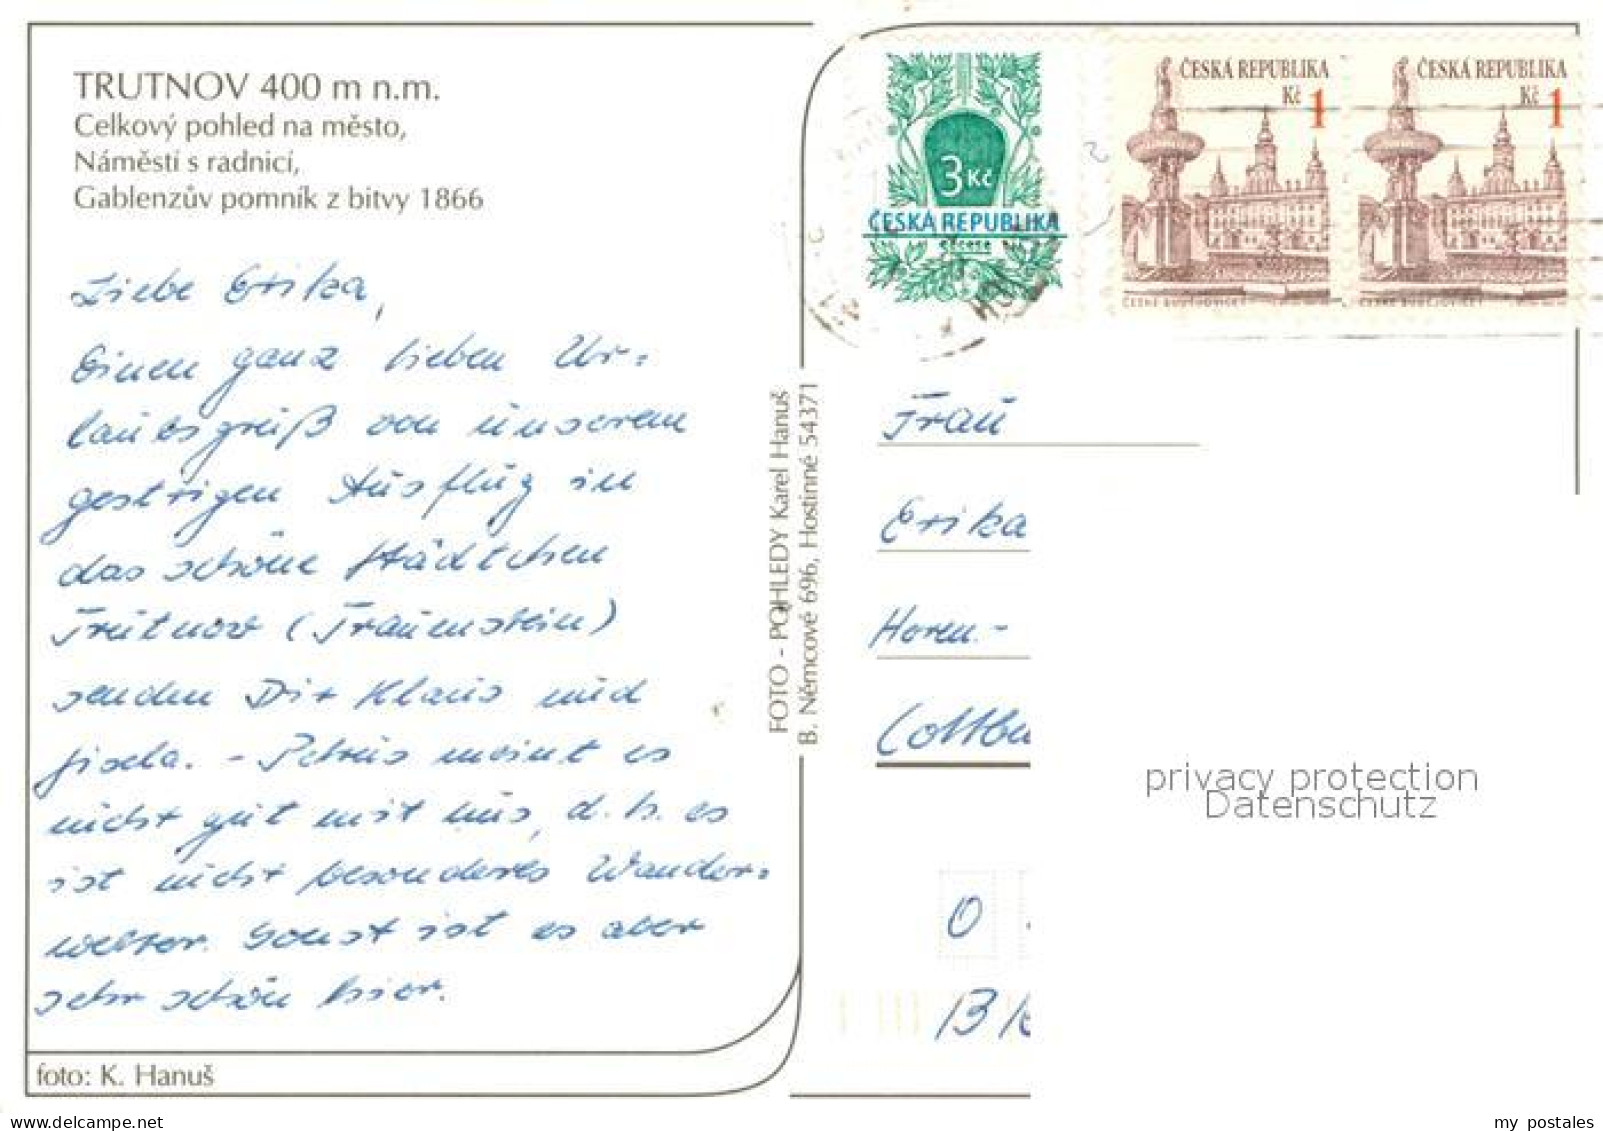 TRUTNOV 400 m n.m.
Celkový pohled na město,
Náměstí s radnicí,
Gablenzův pomník z bitvy 1866
Liebe Erika,
Einen ganz lieben Ur-
laubsgruß von unserem
gestrigen Ausflug in
das schöne Städtchen
Trutnov (Traunstein)
senden Dir Klaus und
Gisela. - Petrus meint es
nicht gut mit uns, d.h. es
ist nicht besonderes Wander-
wetter. Sonst ist es aber
sehr schön hier.
foto: K. Hanuš
FOTO - POHLEDY Karel Hanuš
B. Němcové 696, Hostinné 54371
3 Kč
ČESKÁ REPUBLIKA
ČESKÁ REPUBLIKA
Kč 1
ČESKÉ BUDĚJOVICE
ČESKÁ REPUBLIKA
Kč 1
ČESKÉ BUDĚJOVICE
Frau
Erika
Horn.-
Cottbu
0
privacy protection
Datenschutz
my postales
delcampe.net